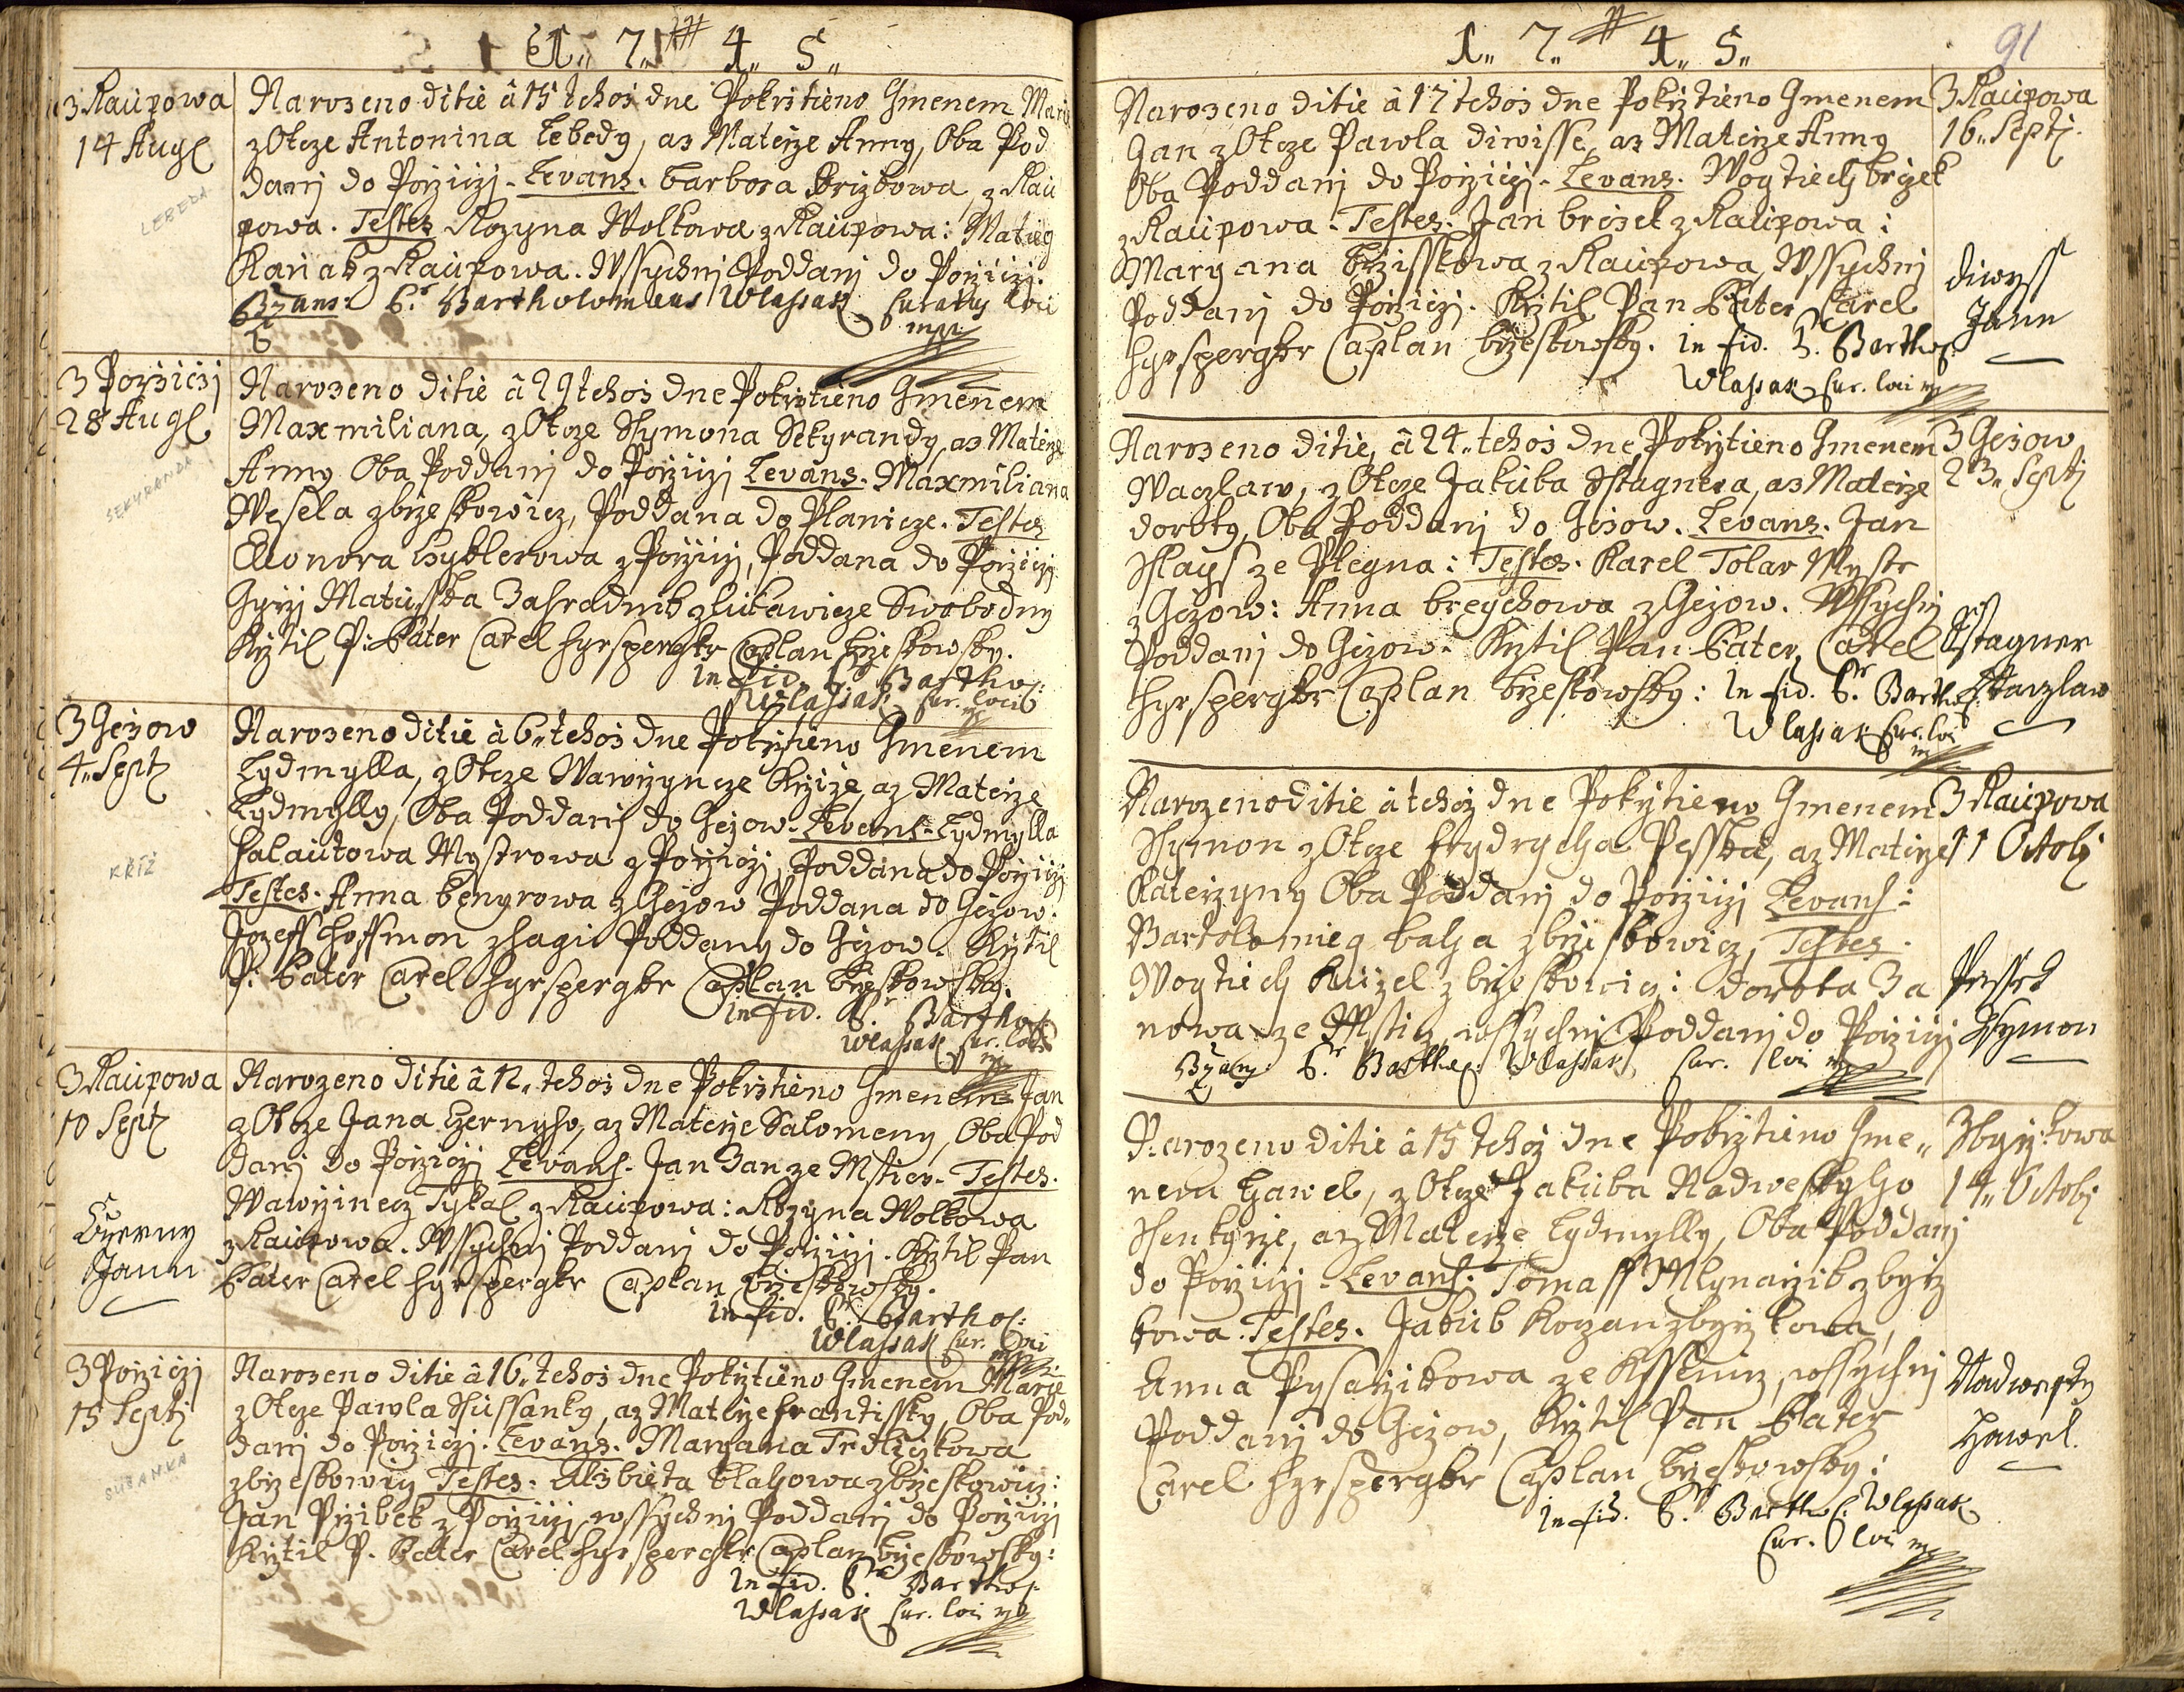 1.. 7.. 4.. 5..
3 Raupowa
14 Aug
LEBEDA
Narozeno ditie â 15 tehož dne Pokrztieno Gmenem
z Otcze Antonina Lebedy, az Materze Anny, Oba Pod
danj do Porziczj. Levans. barbora z Rau
powa. Testes Rozyna Wolkowa z Raupowa: Matieg
z Raupowa. Wssychnj Poddanj do Porziczj.
Bzans P. Bartholomaeus Wlassak Curatus loci
mpp
3 Porziczj
28 Aug
SEKYRANDA
Narozeno ditie â 29 tehož dne Pokrztieno Gmenem
Maxmiliana, z Otcze Ssymona Sekyrandy, az Materze
Anny Oba Poddanj do Porziczj Levans. Maxmiliana
Wesela z brzeskowicz, Poddana do Planicze. Testes
Eleonora z Porziczj, Poddana do Porziczj
Gyrzj Matusska Zahradnik z lukawicze Swobodny
Krztil P: Pater Carel hyrspergkr Caplan brzeskowsky.
In fid. P. Bartho:
Wlassak Cur. loci
3 Gezow
4.. Sept
KŘÍŽ
Narozeno ditie â 6.. tehož dne Pokrztieno Gmenem
Lydmylla, z Otcze Wawrzyncze Krzize, az Materze
Lydmylly, Oba Poddanj do Gezow. Levans. Lydmylla
halautowa Mystrowa z Porziczj, Poddana do Porziczj
Testes. Anna benyrowa z Gezow Poddana do Gezow:
Jozeff hoffmon z hagu Poddany do Gezow. Krztil
P: Pater Carel hyrspergkr Caplan brzeskowsky.
In fid. P. Bartho:
Wlassak Cur. loci
3 Raupowa
10 Sept
Czerny
Jann
Narozeno ditie â 12.. tehož dne Pokrztieno Gmenem Jan
z Otcze Jana Czernyho, az Materze Salomeny, Oba Pod
danj do Porziczj Levans. Jan Zan ze Msticz. Testes.
Wawrzinecz Tykal z Raupowa: Rozyna Wolkowa
z Raupowa. Wssychnj Poddanj do Porziczj. Krztil Pan
Pater Carel hyrspergkr Caplan brzeskowsky.
In fid. P. Bartho:
Wlassak Cur. loci
3 Porziczj
15 Septj
SUSANKA
Narozeno ditie â 16.. tehož dne Pokrztieno Gmenem Marye
z Otcze Pawla Ssussanky, az Materze Frantissky, Oba Pod..
danj do Porziczj. Levans. Maryana Trdliczkowa
z brzeskowicz Testes. Alzbieta blahowa z brzeskowicz:
Jan Przibek z Porziczj wssychnj Poddanj do Porziczj
Krztil P. Pater Carel hyrspergkr Caplan brzeskowsky:
In fid. P. Bartho:
Wlassak Cur. loci mp
1.. 7.. 4.. 5..
91
Narozeno ditie â 17 tehož dne Pokrztieno Gmenem
Jan z Otcze Pawla diwisse, az Materze Anny
Oba Poddanj do Porziczj. Levans. Wogtiech
z Raupowa. Testes. Jan z Raupowa:
Maryana z Raupowa, Wssychnj
Poddanj do Porziczj. Krztil Pan Pater Carel
hyrspergkr Caplan brzeskowsky. In fid. P. Bartho:
Wlassak Cur. loci mp
3 Raupowa
16.. Septj.
diwyss
Jann
Narozeno ditie, â 24.. tehož dne Pokrztieno Gmenem
Waczlaw, z Otcze Jakuba Sstagnera, az Materze
doroty, Oba Poddanj do Gezow. Levans. Jan
Sslays ze Plegna: Testes. Karel Tolar Mystr
z Gezow: Anna breychowa z Gezow. Wssychnj
Poddanj do Gezow. Krztil Pan Pater, Carel
hyrspergkr Caplan brzeskowsky: In fid. P. Bartho:
Wlassak Cur. loci
3 Gezow
23.. Septj
Sstagner
Waczlaw
Narozeno ditie â tehož dne Pokrztieno Gmenem
Ssymon z Otcze frydrycha Pesska, az Materze
Katerzyny Oba Poddanj do Porziczj Levans:
Bartolomieg z brzeskowicz, Testes.
Wogtiech kuzel z brzeskowicz: dorota Za
nowa ze Msticz, wssychnj Poddanj do Porziczj
Bzans: P. Barthol: Wlassak Cur. loci mp
3 Raupowa
11 Octobj
Pessek
Ssymon
Narozeno ditie â 15 tehož dne Pokrztieno Gme..
nem hawel, z Otcze Jakuba Nadweskyho
Ssenkyrze, az Materze Lydmylly, Oba Poddanj
do Porziczj. Levans: Tomass Mlynarzik z byrz
kowa. Testes. Jakub Kozan z byrzkowa,
Anna Pysarzikowa ze wssychnj
Poddanj do Gezow, Krztil Pan Pater
Carel hyrspergkr Caplan brzeskowsky:
In fid. P. Barthol: Wlassak
Cur. loci mp
3 byrzkowa
14.. Octobj
Nadwesky
Hawel.